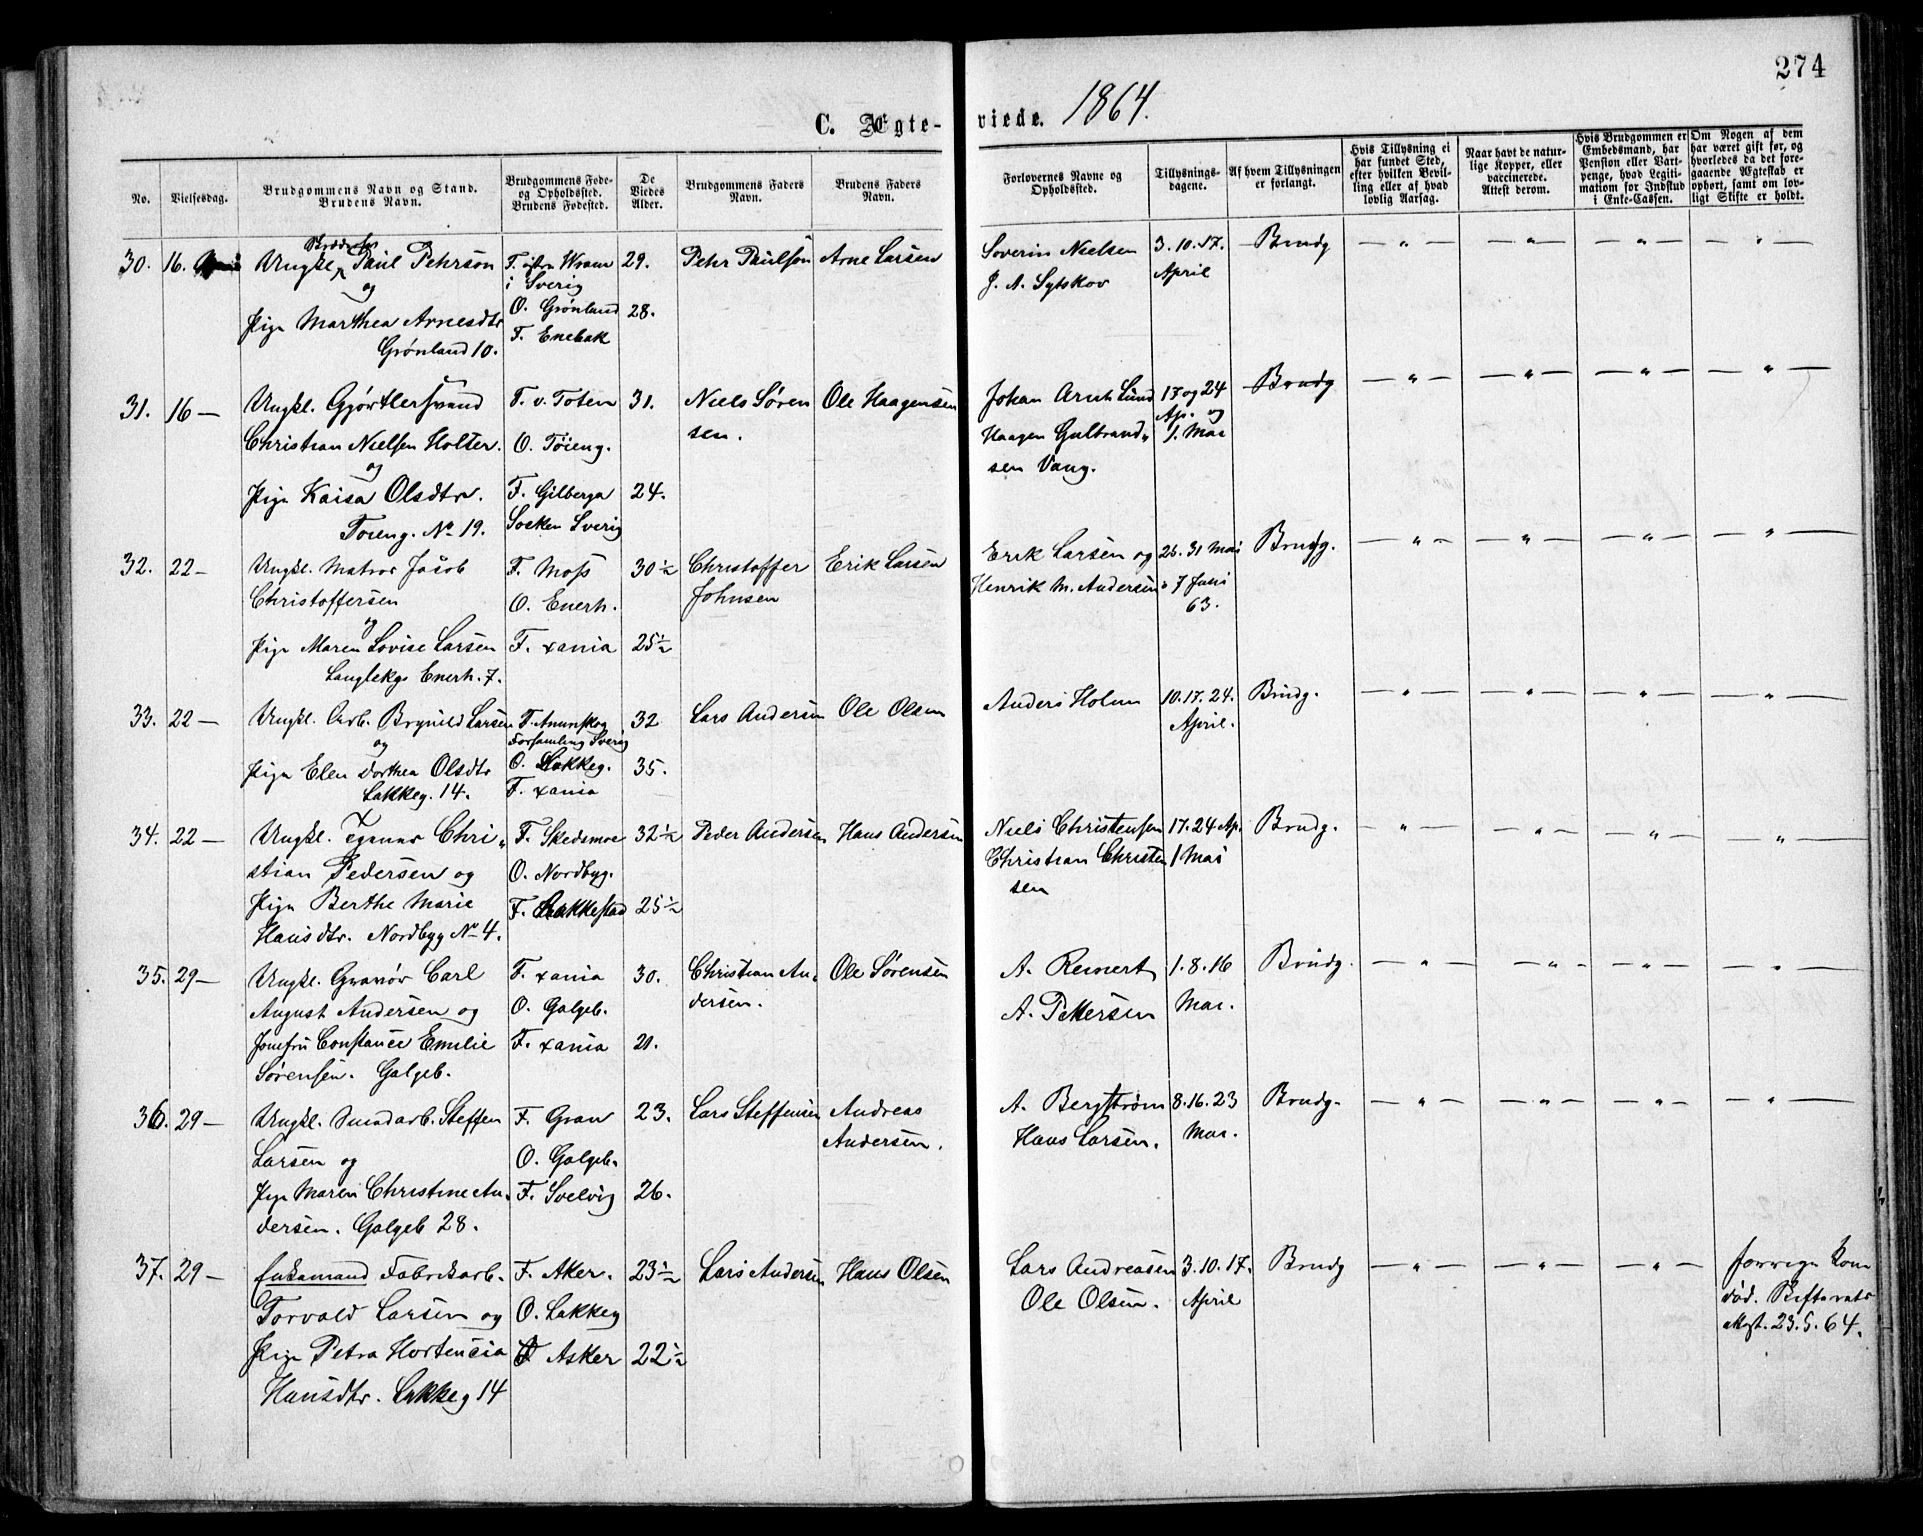 274
C. Ægte-viede. 1864.
No.
Vielsesdag.
Brudgommens Navn og Stand.
Brudens Navn.
Brudgommens Føde-
og Opholdssted.
Brudens Fødested.
De
Viedes
Alder.
Brudgommens Faders
Navn.
Brudens Faders
Navn.
Forlovernes Navne og
Opholdssted.
Tillysnings-
dagene.
Af hvem Tillysningen
er forlangt.
Hvis Tillysning ei
har fundet Sted,
efter hvilken Bevil-
ling eller af hvad
lovlig Aarsag.
Naar havt de natur-
lige Kopper, eller
vaccinerede.
Attest derom.
Hvis Brudgommen er
Embedsmand, har
Pension eller Vart-
penge, hvad Legiti-
mation for Indskud
i Enke-Cassen.
Om Nogen af dem
har været gift før, og
hvorledes da det fore-
gaaende Ægteskab er
ophørt, samt om lov-
ligt Skifte er holdt.
30. 16.
Ungkl. Paul Pehrson
og
Pige Marthea Arnesdtr
Grønland 10.
F. østra Wram
i Sverig
O. Grønland
F. Enebak
29.
28.
Pehr Paulson
Arne Larsen
Soverin Nielsen
J. A. Sytskov
3. 10. 17.
April
Brudg
— " — — " — — " — — " —
31. 16 —
Ungkl. Gjørtlersvend
Christian Nielsen Holter.
og
Pige Kaisa Olsdtr.
Toieng. No 19.
F. v. Toten
O. Tøieng.
F. Gilberga
Socken Sverig
31.
24.
Niels Søren
sen.
Ole Haagensen
Johan Arnt Lund
Haagen Gulbrand„
sen Vang.
17 og 24
Ap. og
1. Mai
Brudg
— " — — " — — " — — " —
32. 22 —
Ungkl. Matros Jacob
Christoffersen
og
Pige Maren Lovise Larsen
Langlekgs Enerh. 7.
F. Moss
O. Enerh.
F. xania
30 ½
25 ½
Christoffer
Johnsen
Erik Larsen
Erik Larsen og
Henrik M. Andersen
25. 31 Mai
7 Juni
63.
Brudg.
— " — — " — — " — — " —
33. 22 —
Ungkl. Arb. Brynild Larsen
og
Pige Elen Dorthea Olsdtr
Lakkeg. 14.
F. Anunskog
Forsamling Sverig
O. Lakkeg.
F. xania
32
35.
Lars Andersen
Ole Olsen
Anders Holm
10. 17. 24.
April.
Brudg.
— " — — " — — " — — " —
34. 22 —
Ungkl. Chri„
stian Pedersen og
Pige Berthe Marie
Hansdtr. Nordbyg No 4.
F. Skedsmoe
O. Nordbyg.
F. Rakkestad
32 ½
25 ½
Peder Andersen
Hans Andersen
Niels Christensen
Christian Christen
sen
17. 24 Ap.
1 Mai
Brudg.
— " — — " — — " — — " —
35. 29 —
Ungkl. Gravør Carl
August Andersen og
Jomfru Constance Emilie
Sørensen. Galgeb.
F. xania
O. Galgeb.
F. xania
30.
21.
Christian An„
dersen.
Ole Sørensen
A. Reinert
A. Pettersen
1. 8. 16
Mai.
Brudg.
— " — — " — — " — — " —
36. 29 —
Ungkl. Smedarb. Steffen
Larsen og
Pige Maren Christine An„
dersen. Galgeb 28.
F. Gran
O. Galgeb.
F. Svelvig
23.
26.
Lars Steffensen
Andreas
Andersen.
A. Bergstrøm
Hans Larsen.
8. 16. 23
Mai.
Brudg.
— " — — " — — " — — " —
37. 29 —
Enkemand Fabrikarb.
Torvald Larsen og
Pige Petra Hortencia
Hansdtr. Lakkeg 14
F. Aker.
O. Lakkeg
F Asker
23 ½
22 ½
Lars Andersen
Hans Olsen
Lars Andreasen
Ole Olsen.
3. 10. 17.
April
Brudg
— " — — " — — " —
forrige Kone
død. Skifterets
Akst. 23. 5. 64.